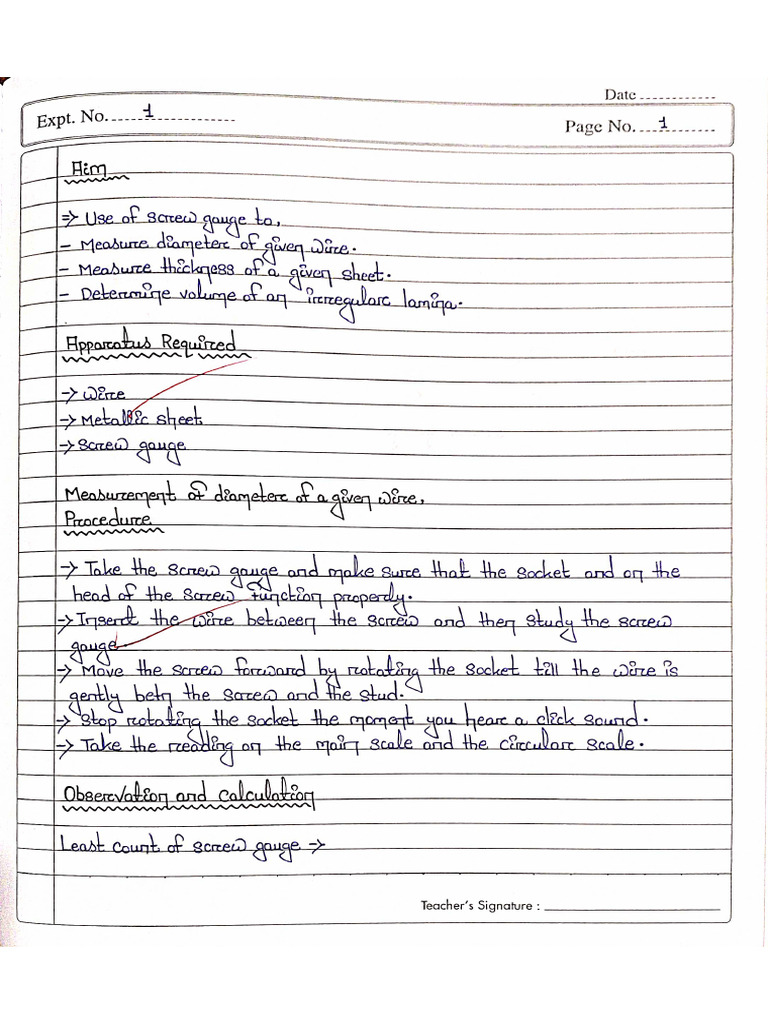 Date
Expt. No. 1
Page No. 1
Aim
⇒ Use of screw gauge to,
- Measure diameter of given wire.
- Measure thickness of a given sheet.
- Determine volume of an irregular lamina.
Apparatus Required
→ Wire
→ Metallic sheet
→ Screw gauge
Measurement of diameter of a given wire,
Procedure
→ Take the screw gauge and make sure that the socket and on the
head of the screw function properly.
→ Insert the wire between the screw and then study the screw
gauge.
→ Move the screw forward by rotating the socket till the wire is
gently betn the screw and the stud.
→ Stop rotating the socket the moment you hear a click sound.
→ Take the reading on the main scale and the circular scale.
Observation and calculation
Least count of screw gauge →
Teacher's Signature :